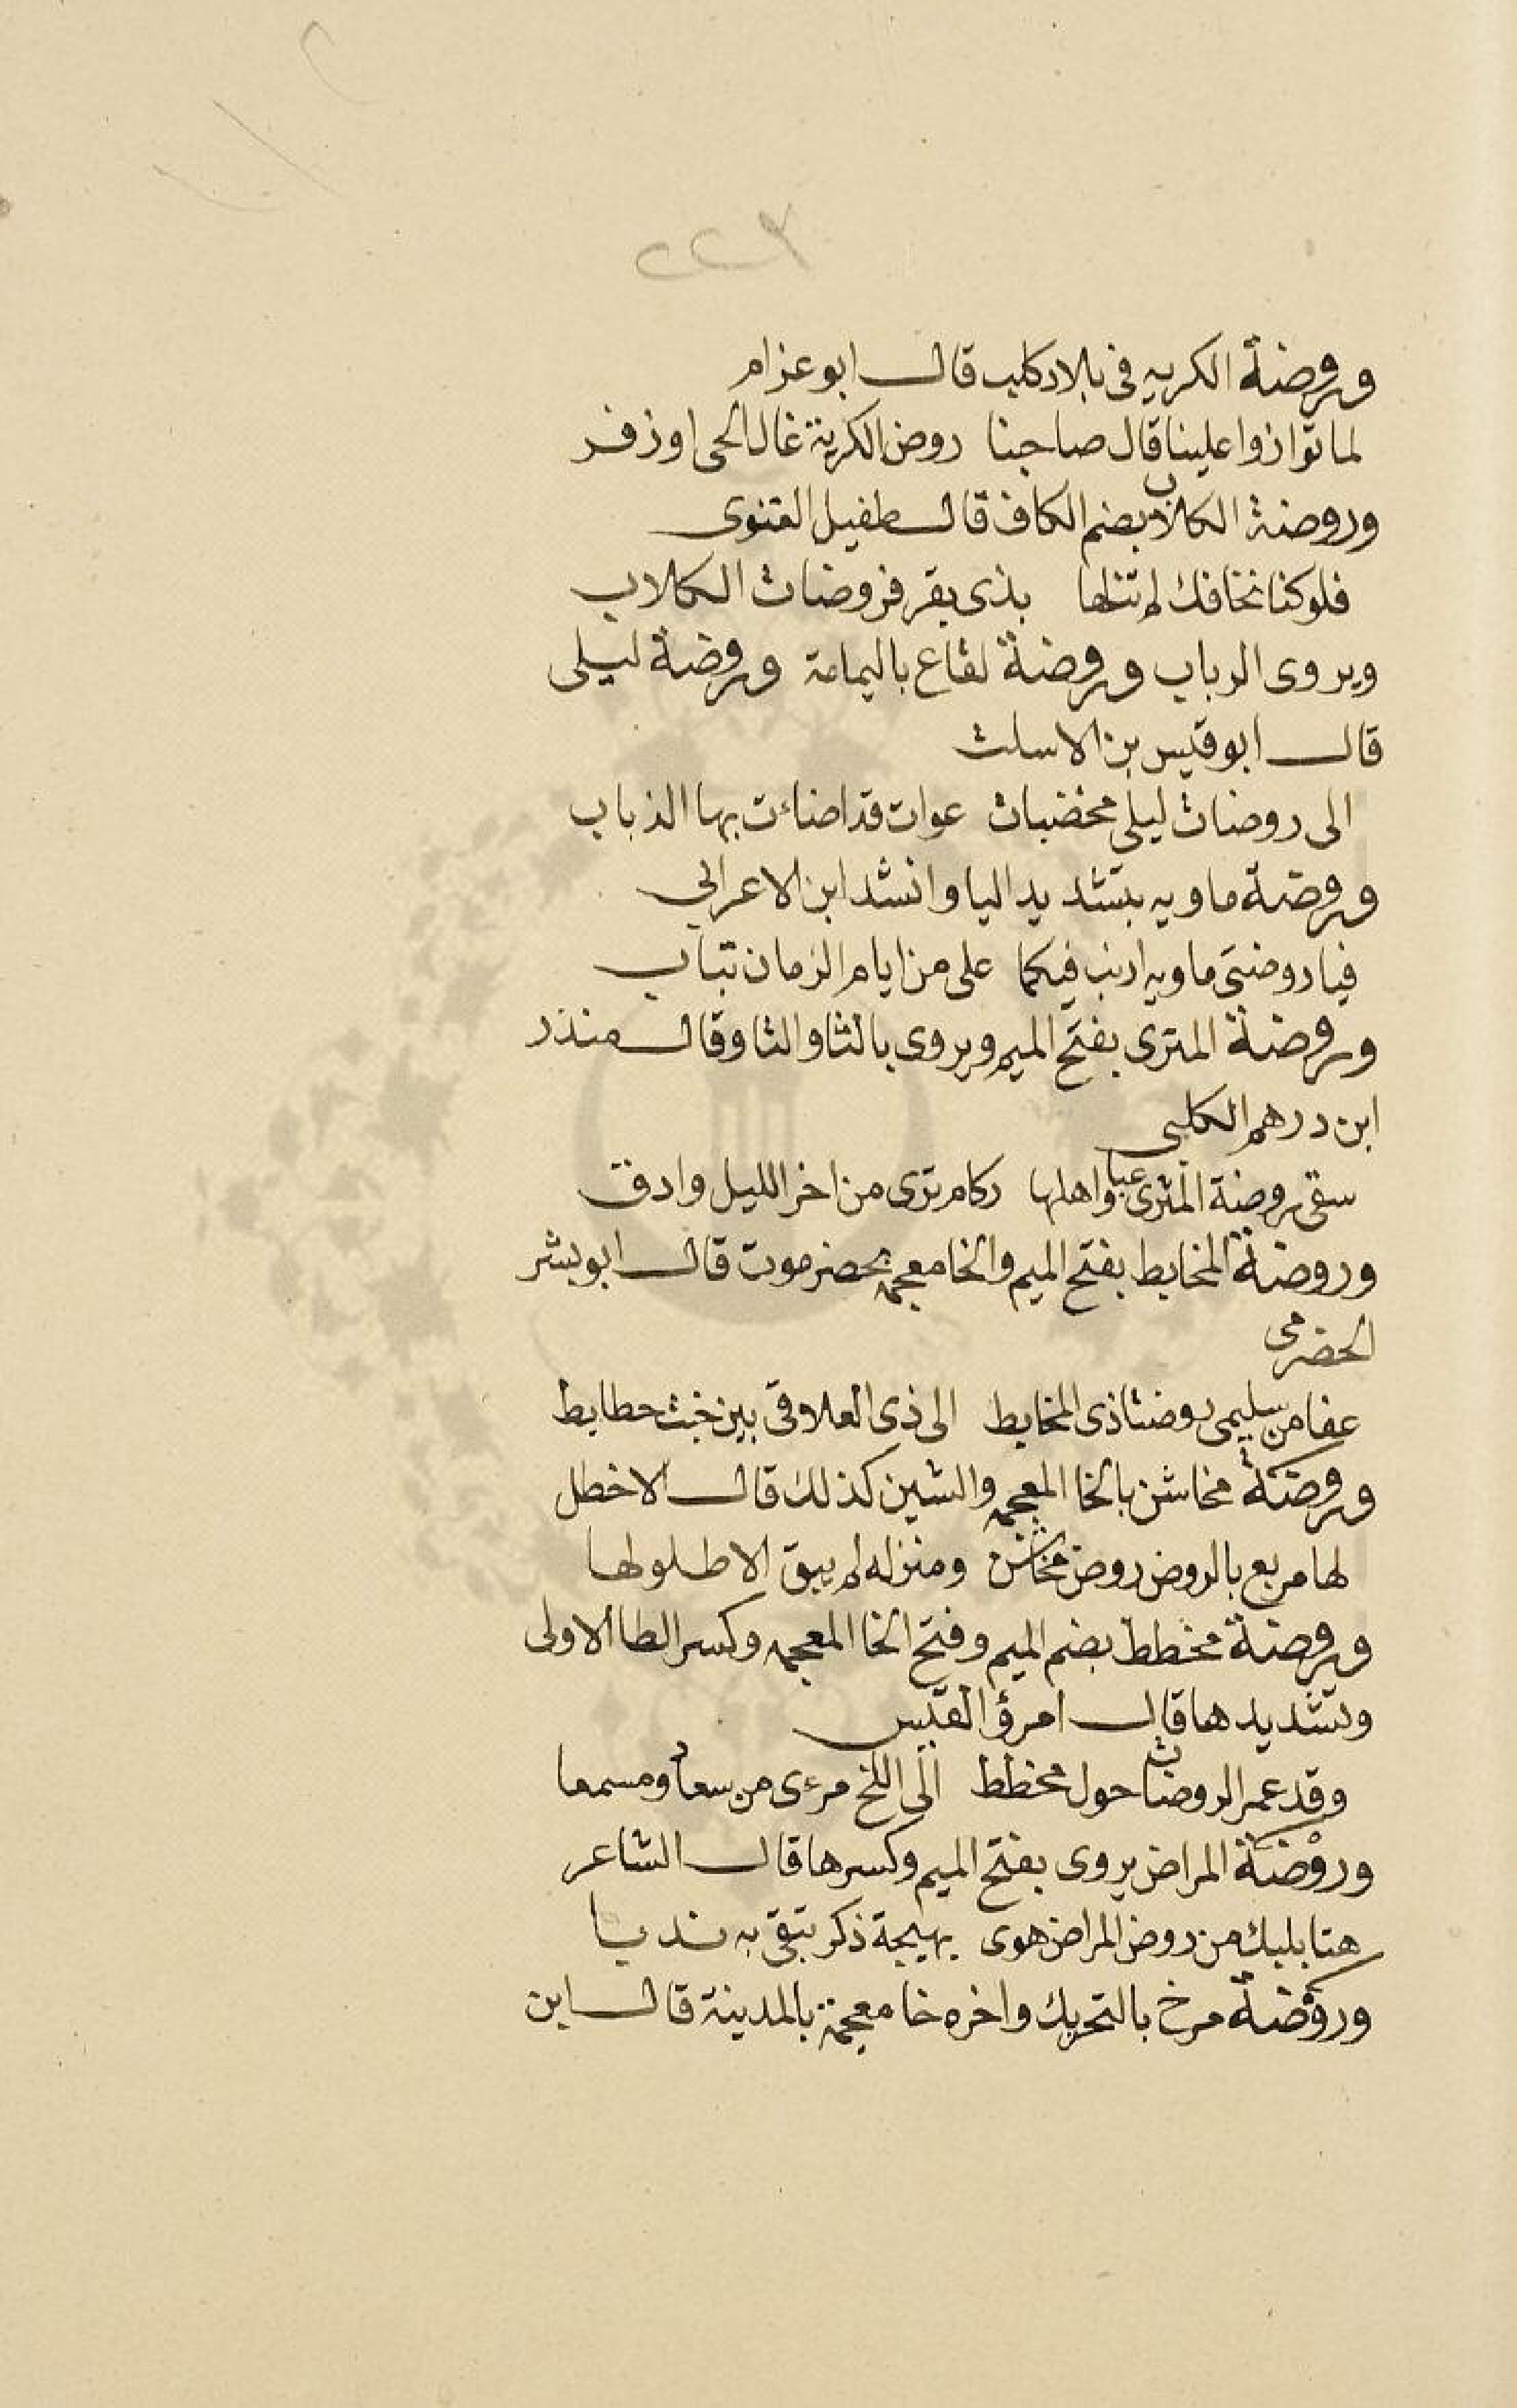 ٢٢٣
وروضة الكريه في بلاد كلب قال ابو عزام
لما توازوا علينا قال صاحبنا روض الكرية غال الحى او زفر
وروضة الكلاب بضم الكاف قال طفيل الغنوى
فلو كنا نخافك لم تنلها بذى بقر فروضات الكلاب
ويروى الرباب وروضة لقاع باليمامة وروضة ليلى
قال ابو قيس بن الاسلت
الى روضات ليلى مخضبات عوات قد اضاءت بها الذباب
وروضة ماويه بتشديد اليا وانشد ابن الاعرابي
فيا روضتى ماويه ارنب فيكما على من ايام الزمان تباب
وروضة المترى بفتح الميم ويروى بالثا والتا وقال منذر
ابن درهم الكلبى
سقى روضة المثرى عيا واهلها ركام ترى من اخر الليل وادق
وروضة المخابط بفتح الميم والخا معجمة بحضرموت قال ابو بشر
الحضرمى
عفا من سليمى روضتا ذى المخابط الى ذى العلاوقى بين خبث حطايط
وروضة مخاشن بالخا المعجمه والشين كذلك قال الاخطل
لها مربع بالروض روض مخاشن ومنزله لم يبق الا طلولها
وروضة مخطط بضم الميم وفتح الخا المعجمه وكسر الطا الاولى
وتشديدها قال امرؤ القيس
وقد عمر الروضات حول مخطط الى اللخ مرءى من سعاد ومسمعا
وروضة المراض يروى بفتح الميم وكسرها قال الشاعر
من روض المراض هوى يهيجة ذكر تبقى به ندبا
وروضة مرخ بالتحريك واخره خا معجمة بالمدينة قال ابن